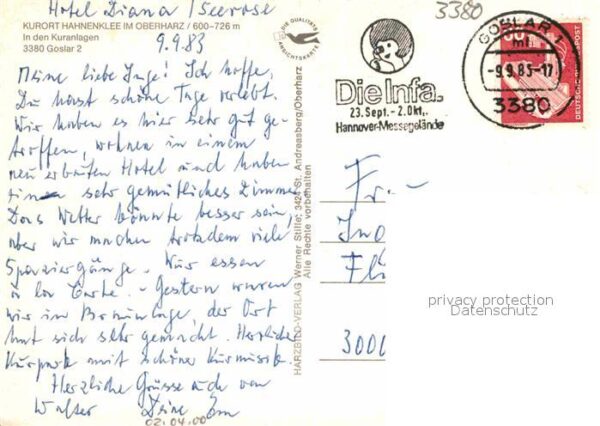 Hotel Diana / Seerose
KURORT HAHNENKLEE IM OBERHARZ / 600–726 m
In den Kuranlagen
3380 Goslar 2
9.9.83
DIE QUALITÄTS ANSICHTSKARTE
Meine liebe Inge! Ich hoffe,
Du hast schöne Tage verlebt.
Wir haben es hier sehr gut ge-
troffen, wohnen in einem
neu erbauten Hotel und haben
ein sehr gemütliches Zimmer
Das Wetter könnte besser sein,
aber wir machen trotzdem viele
Spaziergänge. Wir essen
a la Carte. - Gestern waren
wir in Braunlage, der Ort
hat sich sehr gemacht. Herrlicher
Kurpark mit schöner Kurmusik.
Herzliche Grüsse auch von
Walter Deine
02.04.00
HARZBILD-VERLAG Werner Stille, 3424 St. Andreasberg/Oberharz
Alle Rechte vorbehalten
3380
Die Infa.
23. Sept. - 2. Okt.,
Hannover-Messegelände
GOSLAR
ml
-9.9.83-17
3380
DEUTSCHE BUNDESPOST
Fr.
In
Fl
3000
privacy protection
Datenschutz